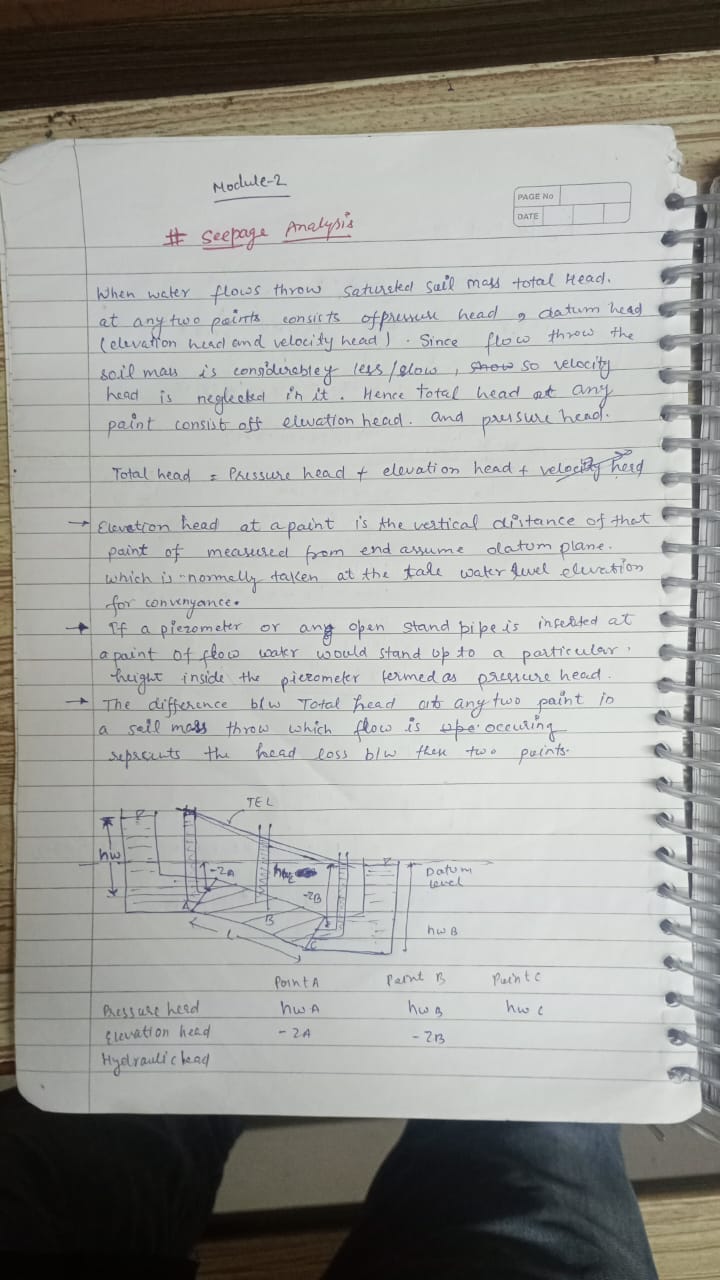 Module-2
PAGE No
DATE
# Seepage Analysis
When water flows throw saturated soil mass total Head.
at any two points consists of pressure head, datum head
(elevation head and velocity head). Since flow throw the
soil mass is considerabley less/slow, so velocity
head is neglected in it. Hence total head at any
paint consist off elevation head. and pressure head.
Total head = Pressure head + elevation head + velocity head
→ Elevation head at a paint is the vertical distance of that
paint of measured from end assume datum plane.
which is normally taken at the tale water level elevation
for convenyance.
→ If a piezometer or any open stand pipe is inserted at
a paint of flow water would stand up to a particular
height inside the piezometer termed as pressure head.
→ The difference b/w Total head at any two paint in
a soil mass throw which flow is occuring
reprsents the head loss b/w these two points.
TEL
hw
-ZA
-ZB
Datum
level
A
B
C
L
hwB
Point A Point B Point C
Pressure head hwA hwB hwC
Elevation head -ZA -ZB
Hydraulic head